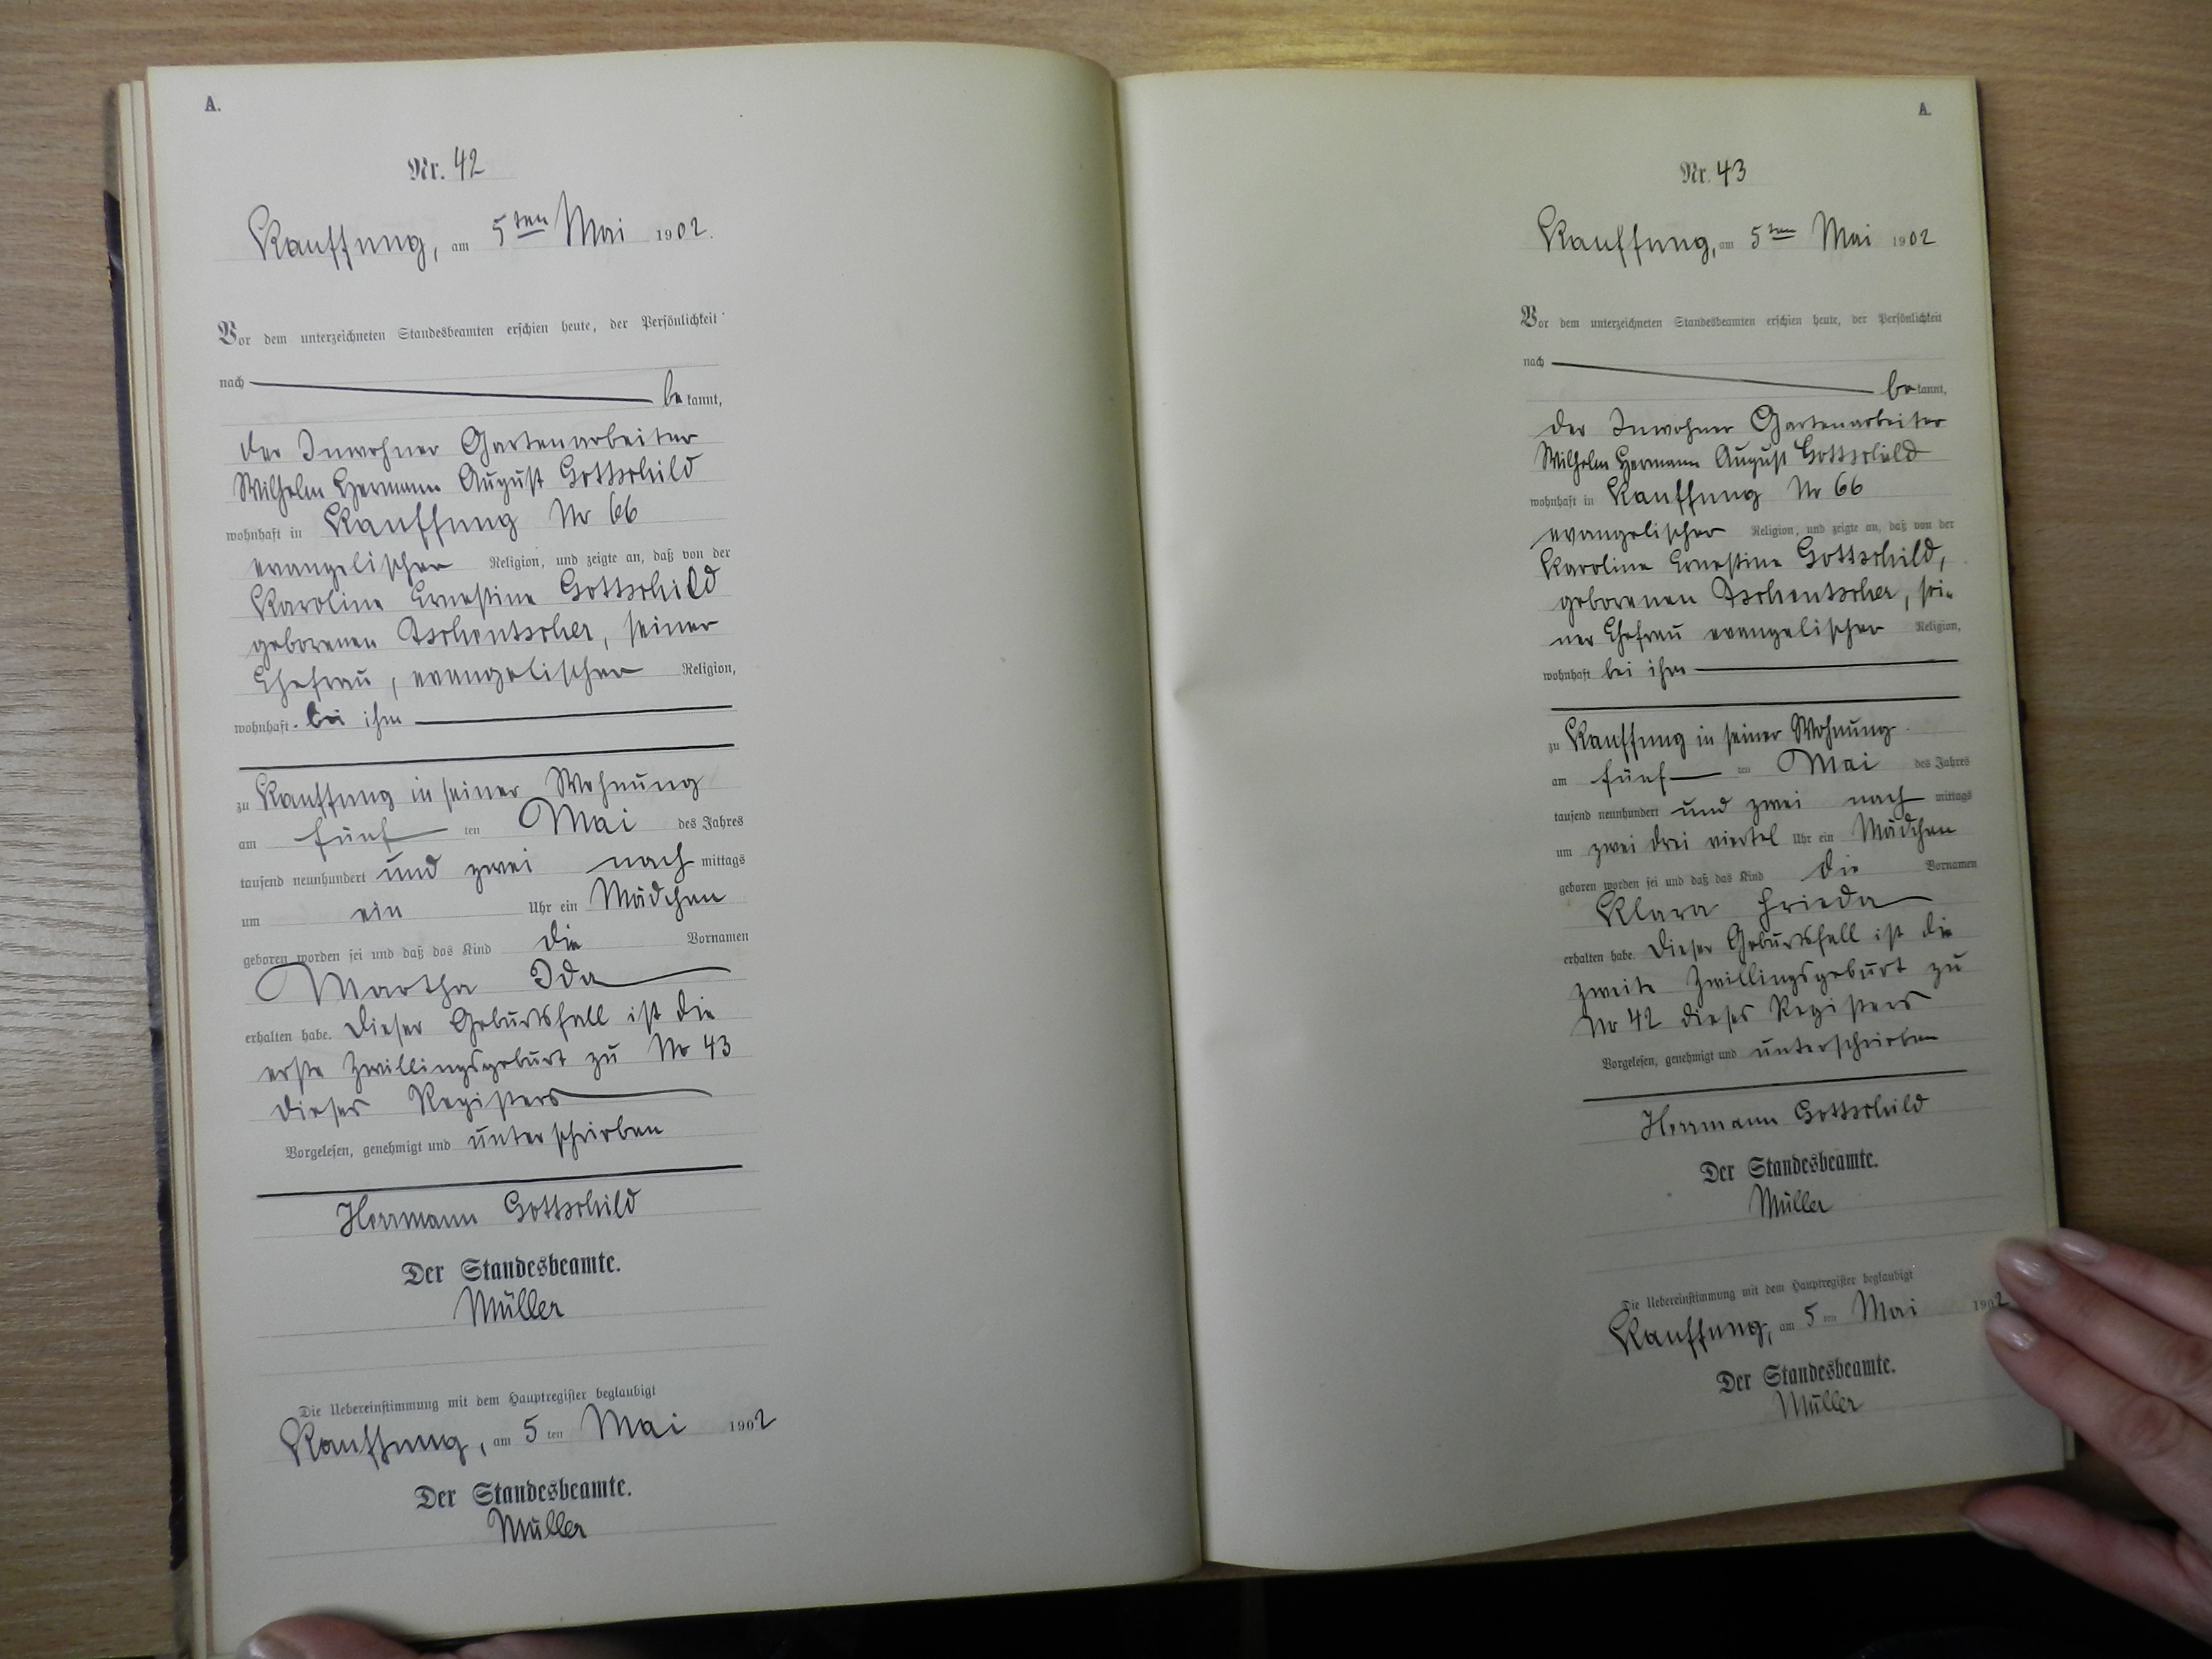 A.
Nr. 42
Kauffung, am 5ten Mai 1902.
Vor dem unterzeichneten Standesbeamten erschien heute, der Persönlichkeit
nach
bekannt,
der Inwohner Gartenarbeiter
Wilhelm Hermann August Gottschild
wohnhaft in Kauffung Nr 66
evangelischer Religion, und zeigte an, daß von der
Karoline Ernestine Gottschild
geborenen Tschentscher, seiner
Ehefrau, evangelischer Religion,
wohnhaft bei ihm
zu Kauffung in seiner Wohnung
am fünf ten Mai des Jahres
tausend neunhundert und zwei nach mittags
um ein Uhr ein Mädchen
geboren worden sei und daß das Kind die Vornamen
Martha Ida
erhalten habe. Dieser Geburtsfall ist die
erste Zwillingsgeburt zu Nr 43
dieses Registers
Vorgelesen, genehmigt und unterschrieben
Herrmann Gottschild
Der Standesbeamte.
Müller
Die Uebereinstimmung mit dem Hauptregister beglaubigt
Kauffung, am 5 ten Mai 1902
Der Standesbeamte.
Müller
A.
Nr. 43
Kauffung, am 5ten Mai 1902
Vor dem unterzeichneten Standesbeamten erschien heute, der Persönlichkeit
nach
bekannt,
der Inwohner Gartenarbeiter
Wilhelm Hermann August Gottschild
wohnhaft in Kauffung Nr 66
evangelischer Religion, und zeigte an, daß von der
Karoline Ernestine Gottschild,
geborenen Tschentscher, sei-
ner Ehefrau evangelischer Religion,
wohnhaft bei ihm
zu Kauffung in seiner Wohnung
am fünf ten Mai des Jahres
tausend neunhundert und zwei nach mittags
um zwei drei viertel Uhr ein Mädchen
geboren worden sei und daß das Kind die Vornamen
Klara Frieda
erhalten habe. Dieser Geburtsfall ist die
zweite Zwillingsgeburt zu
Nr 42 dieses Registers
Vorgelesen, genehmigt und unterschrieben
Herrmann Gottschild
Der Standesbeamte.
Müller
Die Uebereinstimmung mit dem Hauptregister beglaubigt
Kauffung, am 5 ten Mai 1902
Der Standesbeamte.
Müller